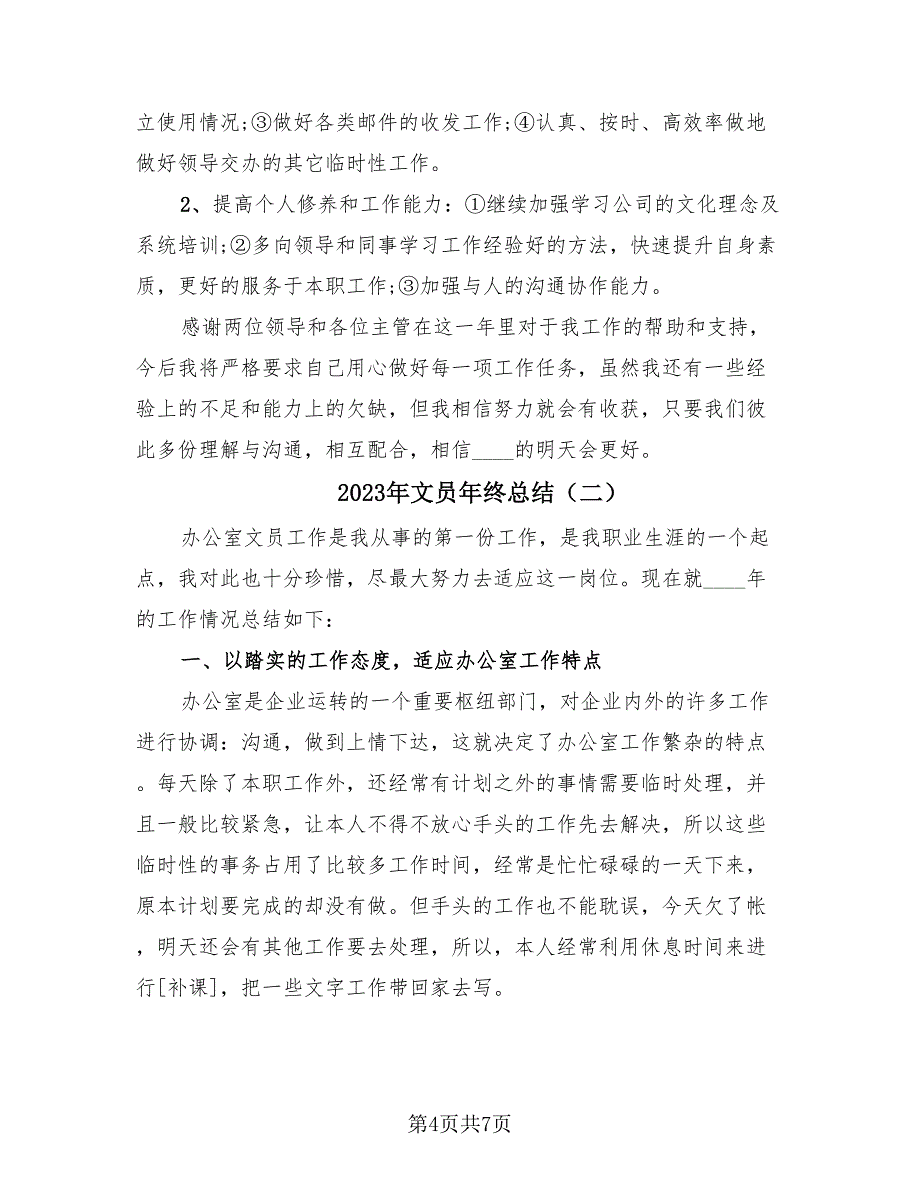 立使用情况;③做好各类邮件的收发工作;④认真、按时、高效率做地
做好领导交办的其它临时性工作。
2、提高个人修养和工作能力：①继续加强学习公司的文化理念及
系统培训;②多向领导和同事学习工作经验好的方法，快速提升自身素
质，更好的服务于本职工作;③加强与人的沟通协作能力。
感谢两位领导和各位主管在这一年里对于我工作的帮助和支持，
今后我将严格要求自己用心做好每一项工作任务，虽然我还有一些经
验上的不足和能力上的欠缺，但我相信努力就会有收获，只要我们彼
此多份理解与沟通，相互配合，相信____的明天会更好。
2023年文员年终总结（二）
办公室文员工作是我从事的第一份工作，是我职业生涯的一个起
点，我对此也十分珍惜，尽最大努力去适应这一岗位。现在就____年
的工作情况总结如下：
一、以踏实的工作态度，适应办公室工作特点
办公室是企业运转的一个重要枢纽部门，对企业内外的许多工作
进行协调：沟通，做到上情下达，这就决定了办公室工作繁杂的特点
。每天除了本职工作外，还经常有计划之外的事情需要临时处理，并
且一般比较紧急，让本人不得不放心手头的工作先去解决，所以这些
临时性的事务占用了比较多工作时间，经常是忙忙碌碌的一天下来，
原本计划要完成的却没有做。但手头的工作也不能耽误，今天欠了帐
，明天还会有其他工作要去处理，所以，本人经常利用休息时间来进
行[补课]，把一些文字工作带回家去写。
第4页共7页